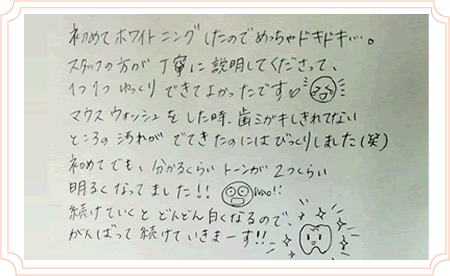 初めてホワイトニングしたのでめっちゃドキドキ…。
スタッフの方が丁寧に説明してくださって、
1つ1つゆっくりできてよかったです♡
マウスウォッシュをした時、歯ミガキしきれてない
ところの汚れがでてきたのにはびっくりしました(笑)
初めてでも、分かるくらいトーンが2つくらい
明るくなってました!! Wao!!
続けていくとどんどん白くなるので、
がんばって続けていきまーす!!